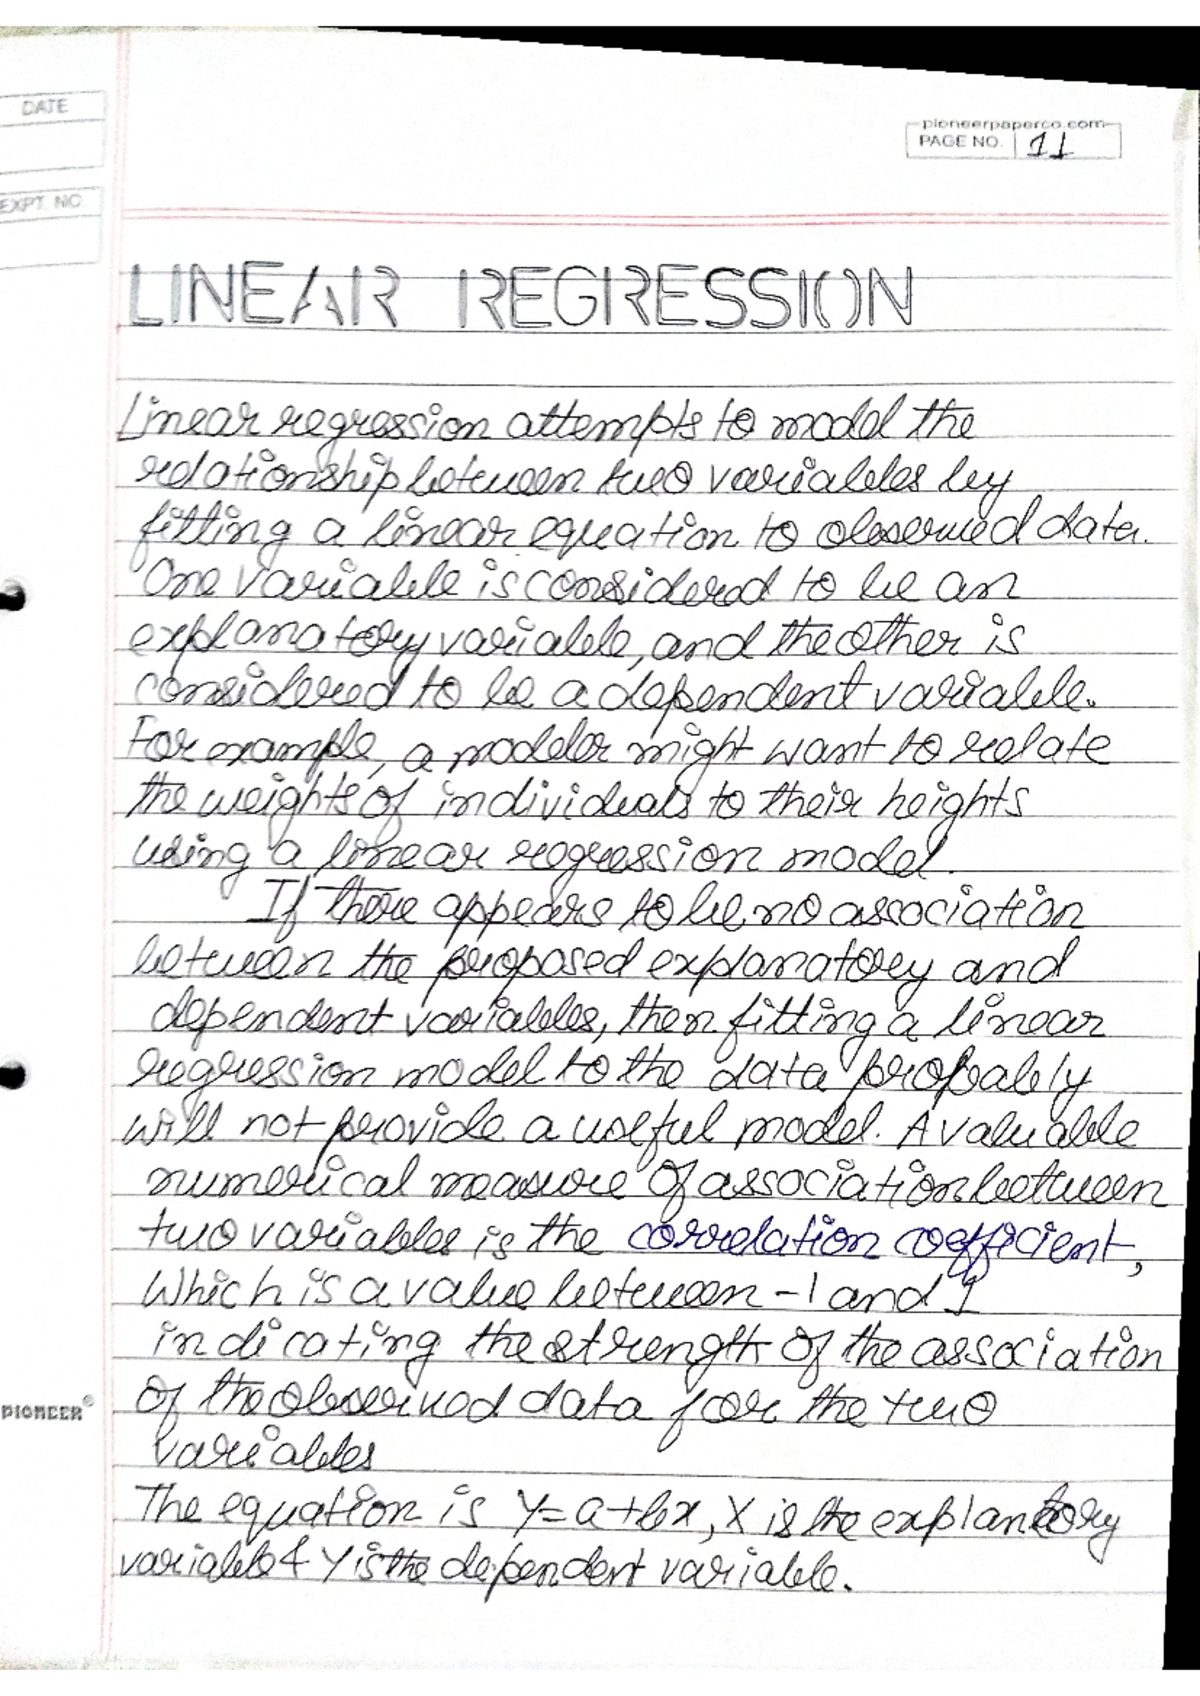 DATE
EXPT. NO.
pioneerpaperco.com
PAGE NO. 11
LINEAR REGRESSION
Linear regression attempts to model the
relationship between two variables by
fitting a linear equation to observed data.
One variable is considered to be an
explanatory variable, and the other is
considered to be a dependent variable.
For example, a modeler might want to relate
the weights of individuals to their heights
using a linear regression model.
If there appears to be no association
between the proposed explanatory and
dependent variables, then fitting a linear
regression model to the data probably
will not provide a useful model. A valuable
numerical measure of association between
two variables is the correlation coefficient,
Which is a value between -1 and 1
indicating the strength of the association
of the observed data for the two
variables
The equation is Y=a+bx, X is the explanatory
variable & Y is the dependent variable.
PIONEER®